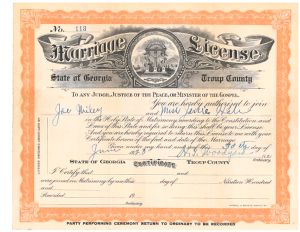 No. 113
Marriage License
State of Georgia Troup County
To any Judge, Justice of the Peace, or Minister of the Gospel.
You are hereby authorized to join
Joe and Miss
in the Holy State of Matrimony according to the Constitution and
Laws of this State and for so doing this shall be your License.
And you are hereby required to return this License to me with your
Certificate hereon of the fact and date of the Marriage.
Given under my hand and seal this
June
Ordinary
State of Georgia Certificate Troup County
I Certify that and
were joined in Matrimony by me this day of Nineteen Hundred
and
Recorded 19
Ordinary
PARTY PERFORMING CEREMONY RETURN TO ORDINARY TO BE RECORDED